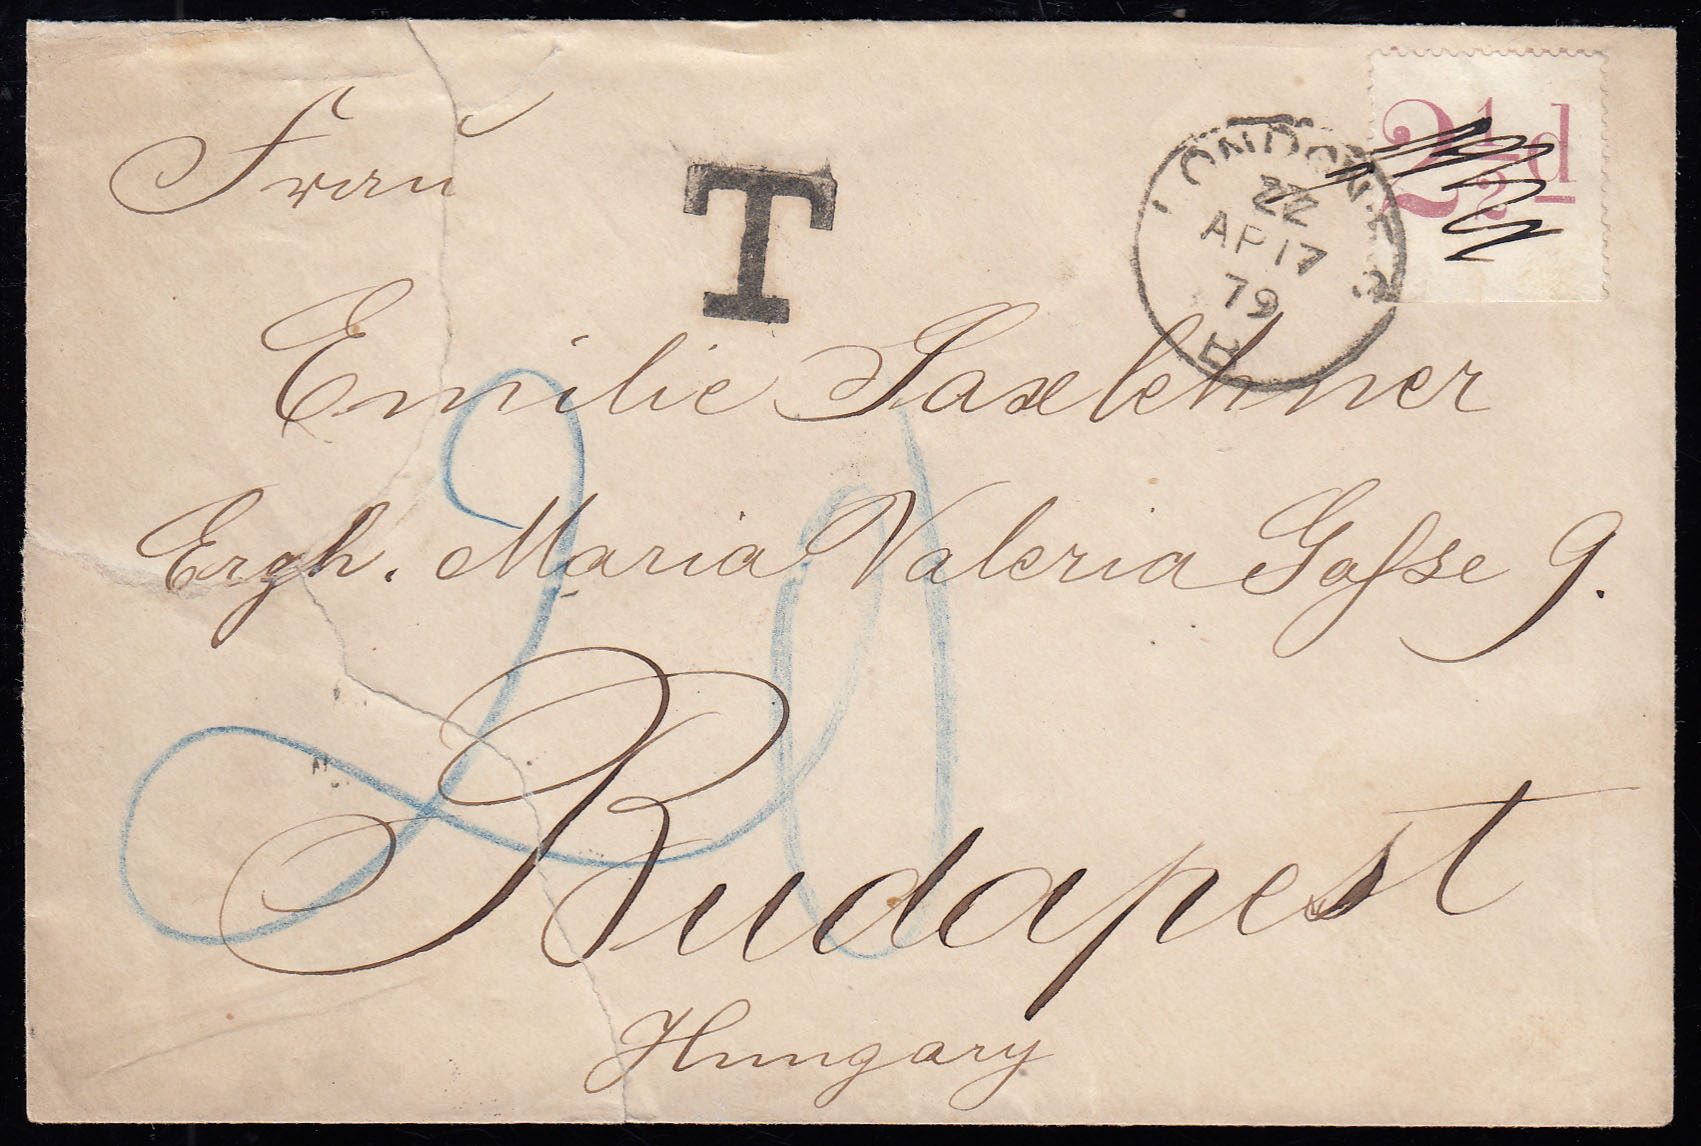 Frau
T
LONDON. 
22
AP 17
79
2½d
Emilie Saxlehner
Ergh. Maria Valeria Gasse 9.
20
Budapest
Hungary